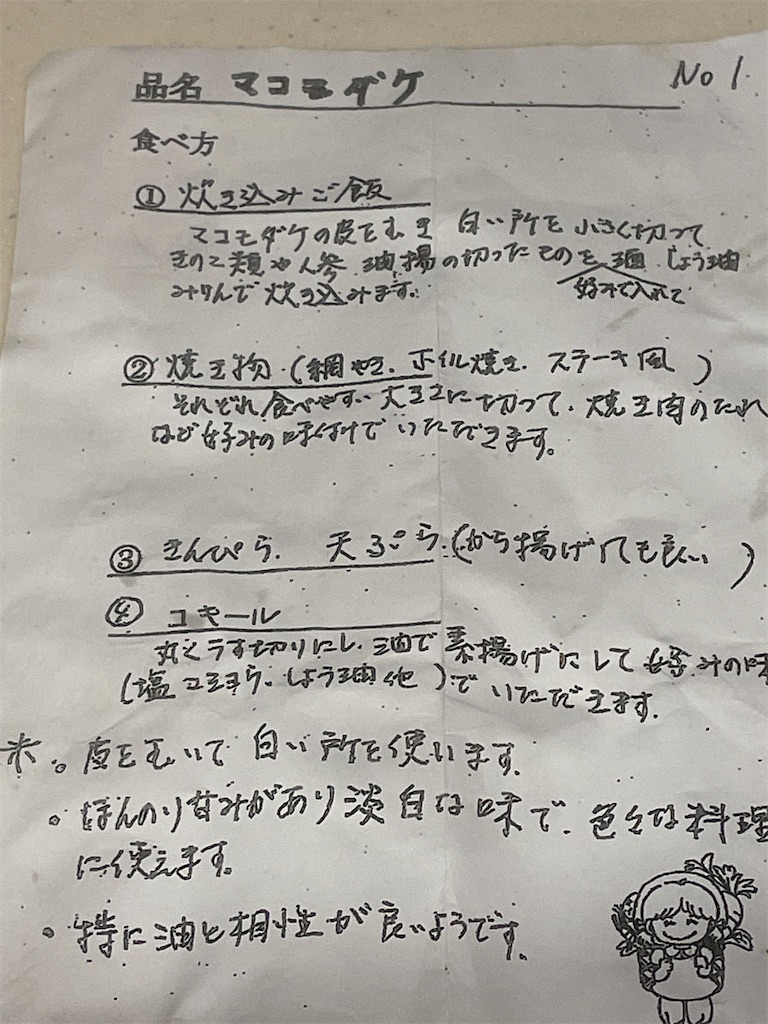 品名 マコモダケ No 1
食べ方
① 炊き込みご飯
マコモダケの皮をむき 白い所を 小さく切って
きのこ類や人参 油揚の切ったものを 酒 しょう油
みりんで炊き込みます。 好みで入れて
② 焼き物 (網やき. ホイル焼き. ステーキ風 )
それぞれ食べやすい大きさに切って. 焼き肉のたれ
など好みの味付けでいただきます。
③ きんぴら. 天ぷら. (から揚げても良い )
④ コキール
丸くうす切りにし. 油で素揚げにして好みの味
(塩コショウ. しょう油 他 )でいただきます.
※ 。皮をむいて白い所を使います.
。ほんのり甘みがあり淡白な味で. 色々な料理
に使えます。
。特に油と相性が良いようです.